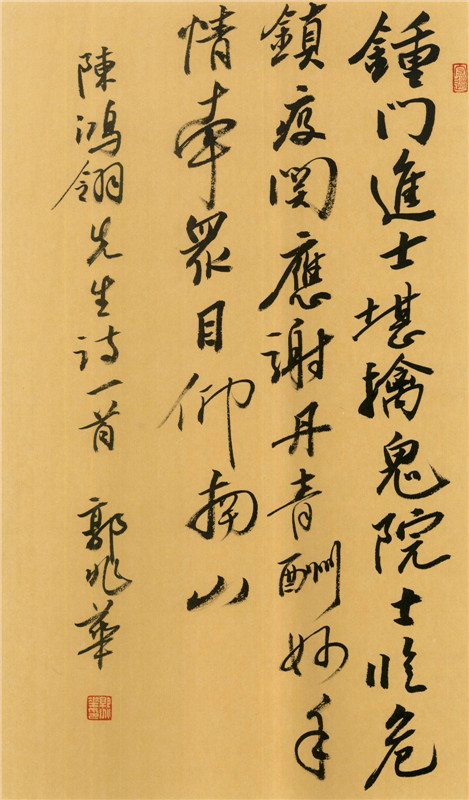 鍾門進士堪擒鬼院士临危
鎮疫関應謝丹青酬妙手
情牽眾目仰南山
陳鴻翎先生诗一首 郭兆華